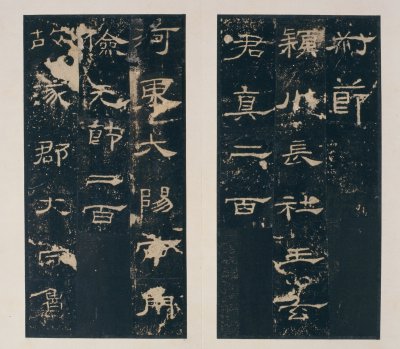 節
潁川長社王玄
君真二百
河東大陽西門
儉元節二百
故涿郡大守魯